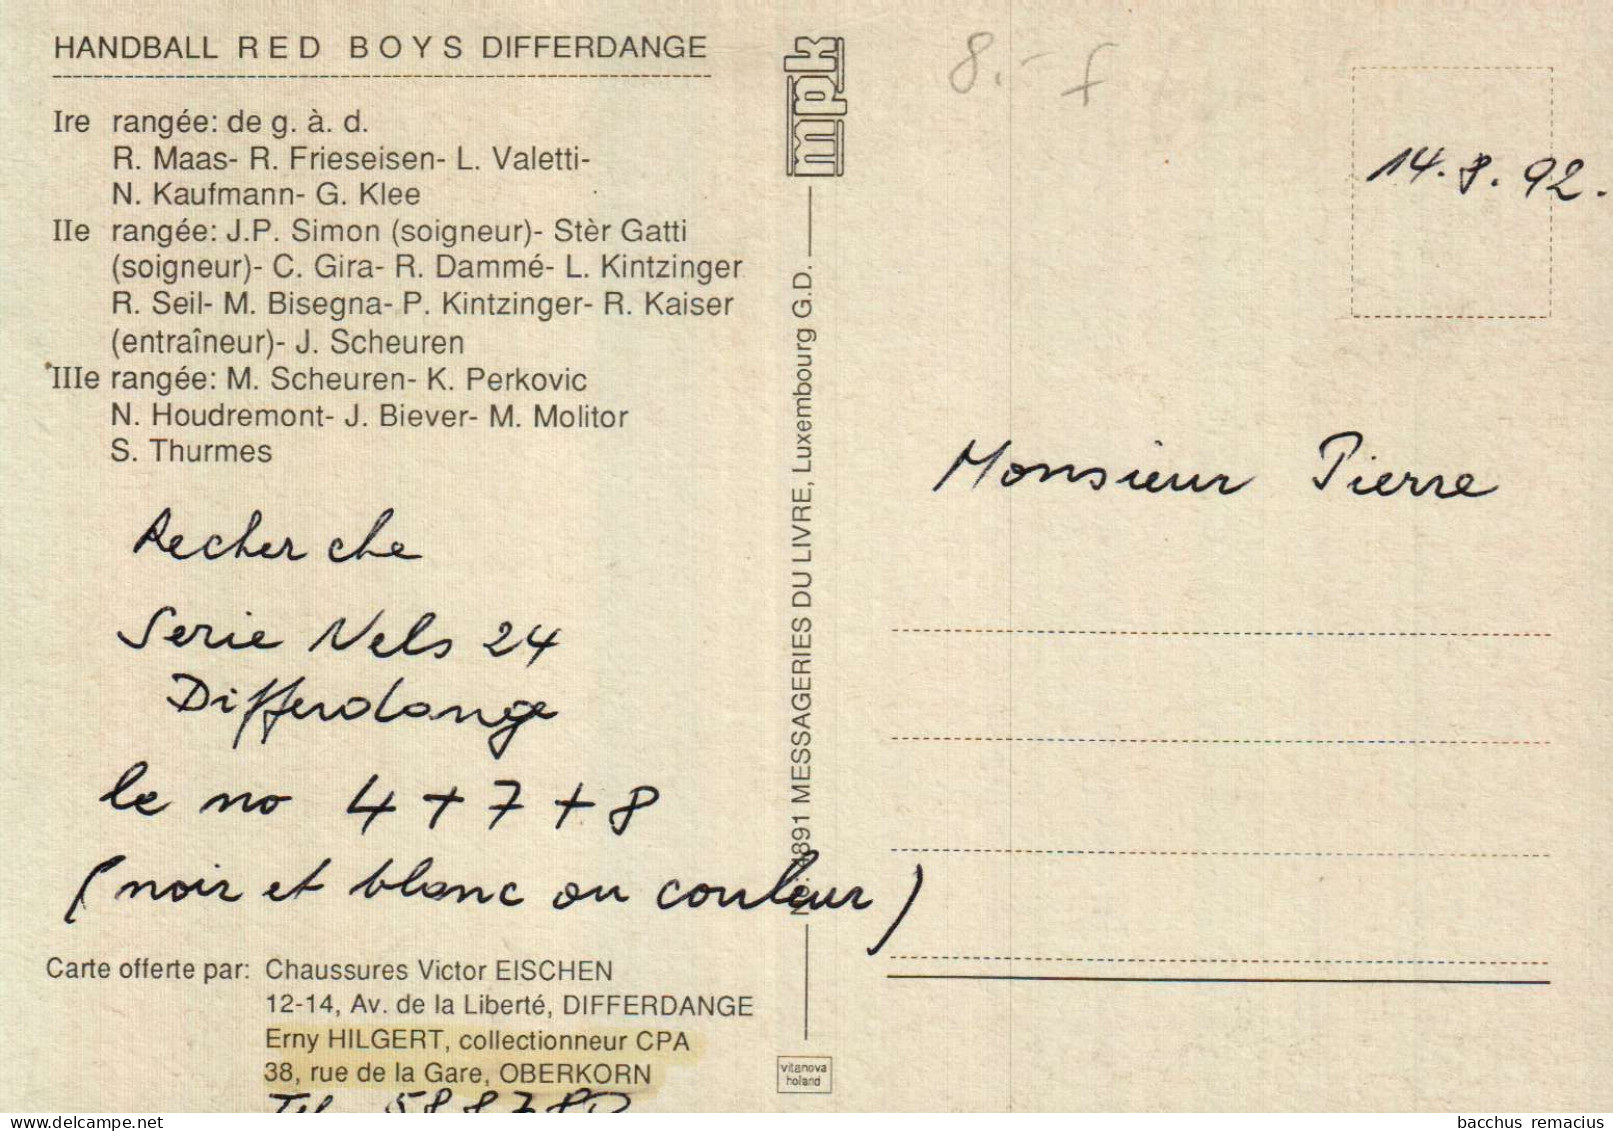 HANDBALL RED BOYS DIFFERDANGE
Ire rangée: de g. à. d.
R. Maas- R. Frieseisen- L. Valetti-
N. Kaufmann- G. Klee
IIe rangée: J.P. Simon (soigneur)- Stèr Gatti
(soigneur)- C. Gira- R. Dammé- L. Kintzinger
R. Seil- M. Bisegna- P. Kintzinger- R. Kaiser
(entraîneur)- J. Scheuren
IIIe rangée: M. Scheuren- K. Perkovic
N. Houdremont- J. Biever- M. Molitor
S. Thurmes
Recherche
Serie Nels 24
Differdange
le no 4 + 7 + 8
(noir et blanc ou couleur)
Carte offerte par: Chaussures Victor EISCHEN
12-14, Av. de la Liberté, DIFFERDANGE
Erny HILGERT, collectionneur CPA
38, rue de la Gare, OBERKORN
Tel
mpk
891 MESSAGERIES DU LIVRE, Luxembourg G.D.
vitanova
holand
8.- f
14.8.92.
Monsieur Pierre
bacchus remacius